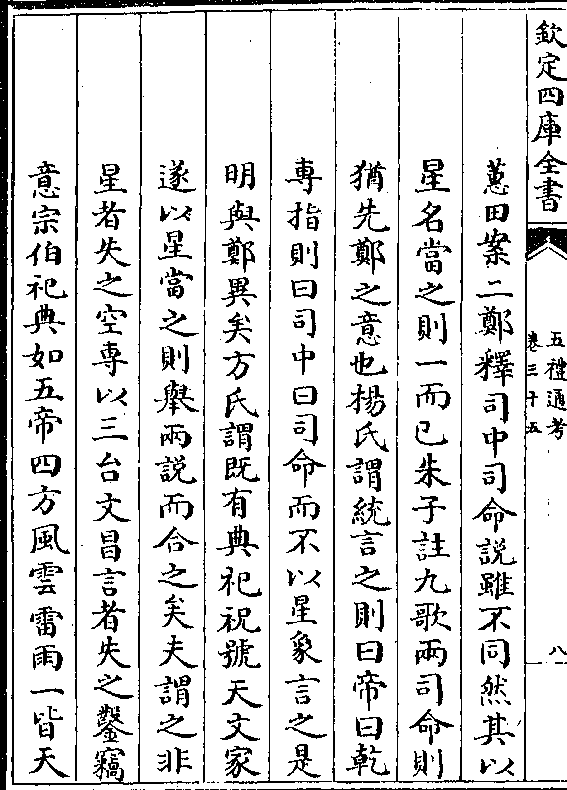 欽定四庫全書
五禮通考
卷三十五
八
蕙田案二鄭釋司中司命說雖不同然其以
星名當之則一而已朱子註九歌兩司命則
猶先鄭之意也楊氏謂統言之則曰帝曰乾
專指則曰司中曰司命而不以星象言之是
明與鄭異矣方氏謂既有典祀祝號天文家
遂以星當之則舉兩説而合之矣夫謂之非
星者失之空專以三台文昌言者失之鑿竊
意宗伯祀典如五帝四方風雲雷雨一皆天